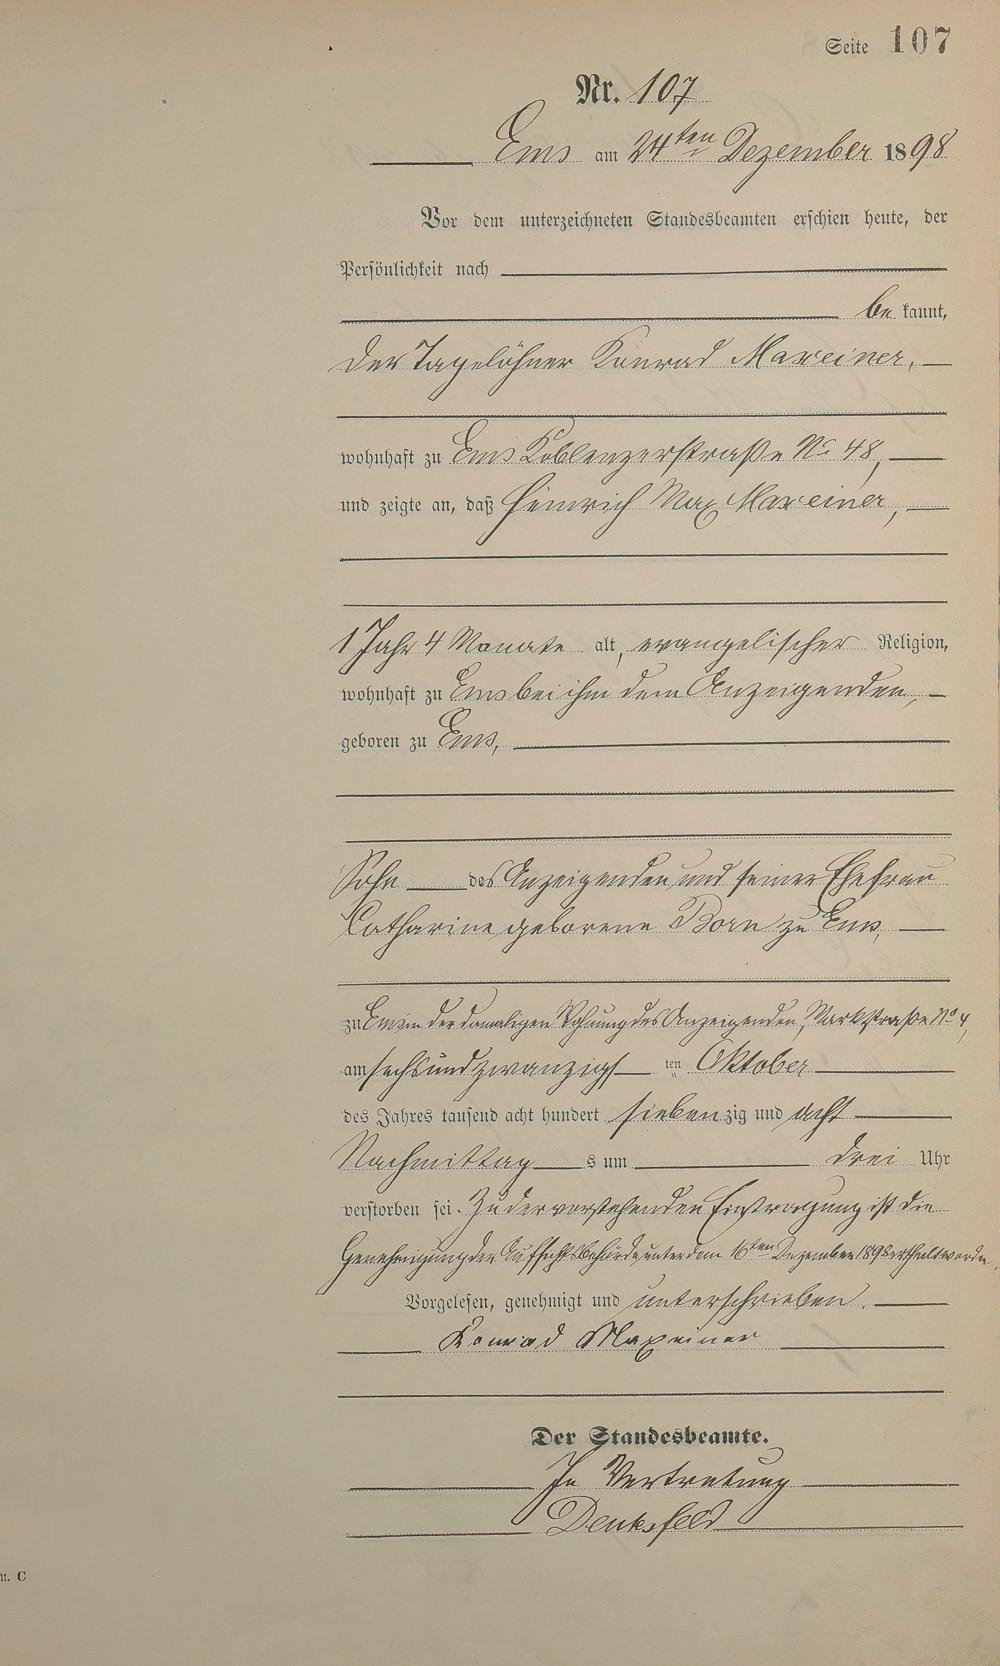 Seite 107
Nr. 107
Ems am 24ten Dezember 1898
Vor dem unterzeichneten Standesbeamten erschien heute, der
Persönlichkeit nach
be kannt,
der Tagelöhner Konrad Maxeiner,
wohnhaft zu Ems Koblenzerstraße No 48,
und zeigte an, daß Heinrich Max Maxeiner,
1 Jahr 4 Monate alt, evangelischer Religion,
wohnhaft zu Ems bei ihm dem Anzeigenden,
geboren zu Ems,
Sohn des Anzeigenden und seiner Ehefrau
Catharine geborene Born zu Ems,
zu Ems in der damaligen Wohnung des Anzeigenden, Markstraße No 4,
am sechsundzwanzigst ten Oktober
des Jahres tausend acht hundert siebenzig und acht
Nachmittag s um drei Uhr
verstorben sei. Zu der vorstehenden Eintragung ist die
Genehmigung der Aufsichtsbehörde unter dem 16ten Dezember 1898 ertheilt worden.
Vorgelesen, genehmigt und unterschrieben.
Konrad Maxeiner
Der Standesbeamte.
In Vertretung
u. C